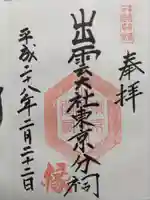 奉拝
出雲大社東京分祠
平成二十八年二月二十二日
縁